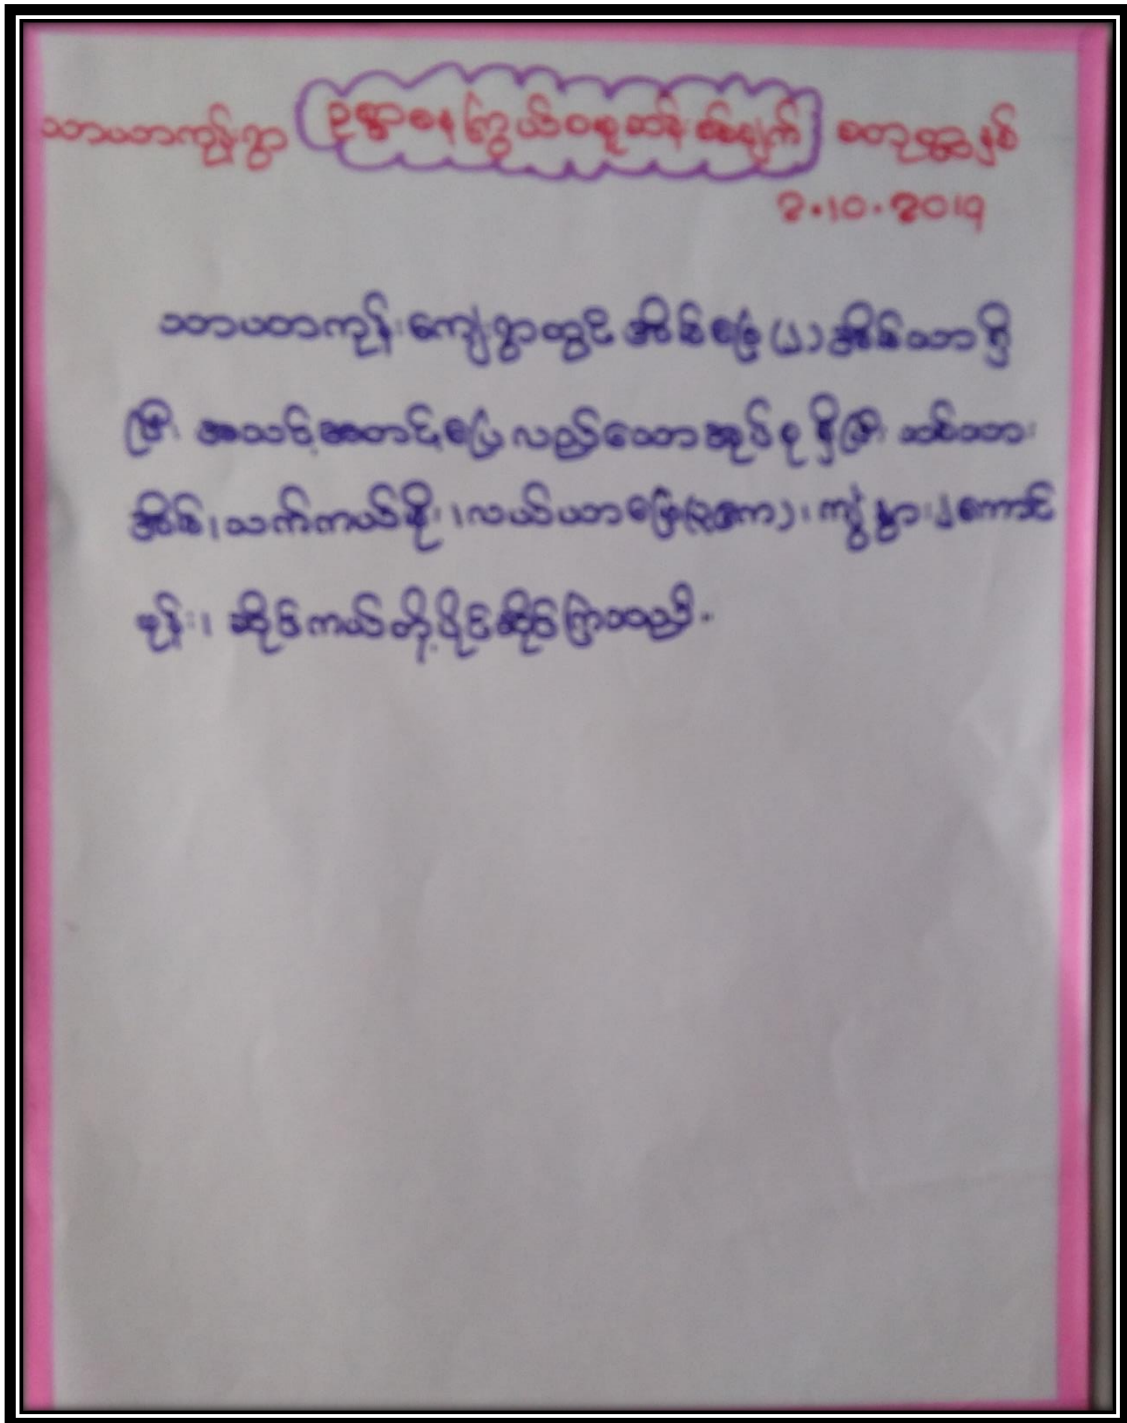 သာယာကုန်းရွာ ဥစ္စာဓနကြွယ်ဝချမ်းသာ စတုတ္ထနှစ်
2.10.2019
သာယာကုန်းကျေးရွာတွင် အိမ်ခြေ (၂) အိမ်သာ ရှိ
ပြီး အသင့်အတင့်ပြေလည်သော အုပ်စု ရှိပြီး သစ်သား
အိမ်၊ သက်ကယ်မိုး၊ လယ်ယာမြေ(၃ဧက)၊ ကျွဲ နွား ၂ကောင်
ဖုန်း၊ ဆိုင်ကယ်တို့ ပိုင်ဆိုင်ကြသည်။